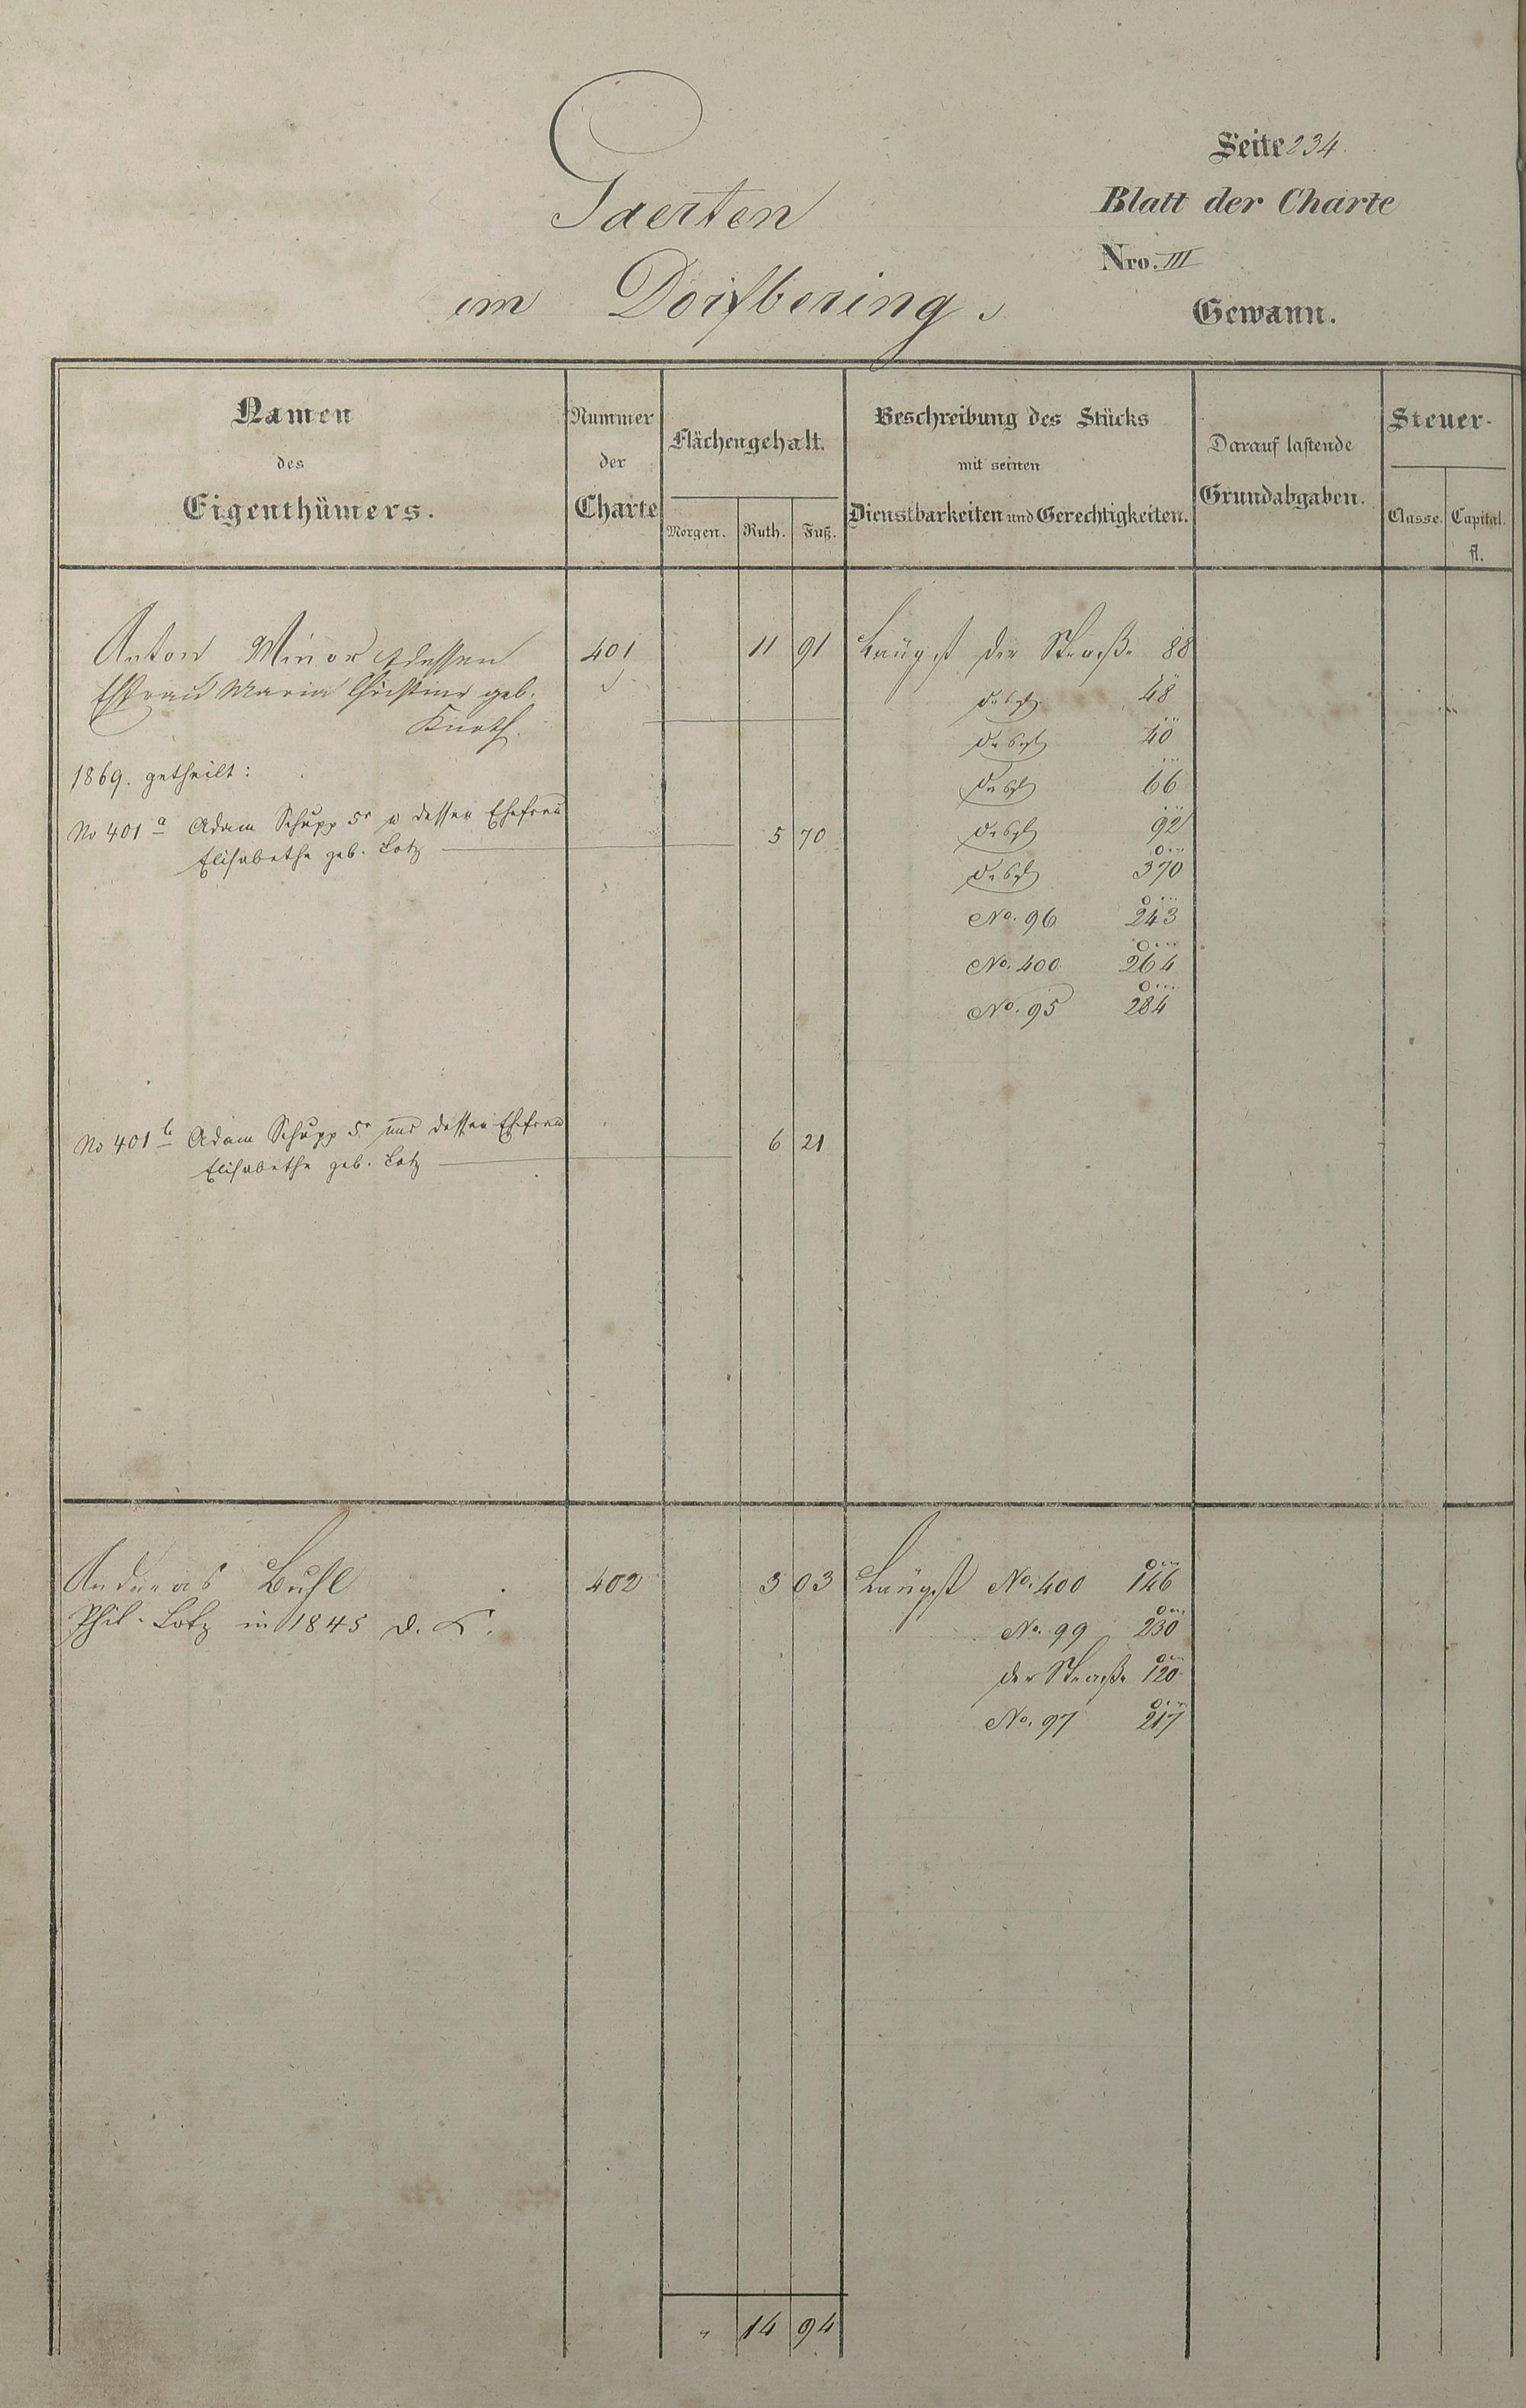 Seite 234
Gaerten
Blatt der Charte
Nro. III
im Dorfbering.
Gewann.
Namen
des
Eigenthümers.
Nummer
der
Charte
Flächengehalt.
Morgen. Ruth. Fuß.
Beschreibung des Stücks
mit seinen
Dienstbarkeiten und Gerechtigkeiten.
Darauf lastende
Grundabgaben.
Steuer-
Classe. Capital.
fl.
Anton Minor & dessen 401 11 91 Längst der Straße 88
Ehfrau Maria Christine geb. desgl 48
Knoth. desgl 40
1869. getheilt: desgl 66
No 401 a Adam Schupp 5r u dessen Ehefrau 5 70 desgl 92
Elisabethe geb. Lotz desgl 370
No. 96 243
No. 400 264
No. 95 284
No 401 b Adam Schupp 5r und dessen Ehefrau 6 21
Elisabethe geb. Lotz
Andreas Buhl 402 3 03 Längst No. 400 146
Phil. Lotz in 1845 d. K. No. 99 230
der Straße 120
No. 97 217
" 14 94